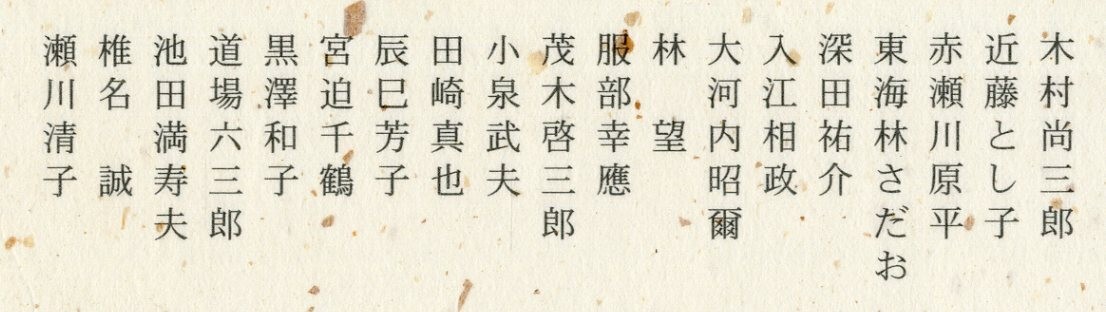 木村尚三郎
近藤とし子
赤瀬川原平
東海林さだお
深田祐介
入江相政
大河内昭爾
林　望
服部幸應
茂木啓三郎
小泉武夫
田崎真也
辰巳芳子
宮迫千鶴
黒澤和子
道場六三郎
池田満寿夫
椎名　誠
瀬川清子